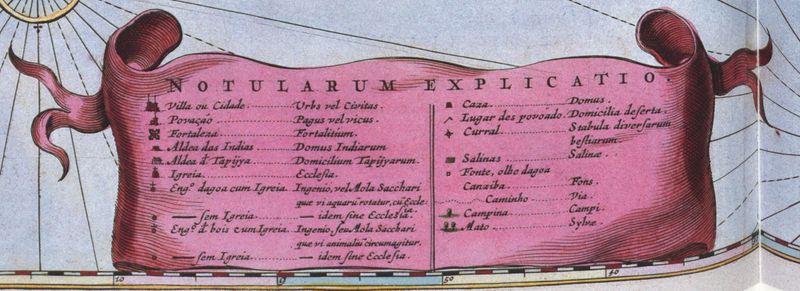 NOTULARUM EXPLICATIO.
Villa ou Cidade. Urbs vel Civitas.
Povaçaõ Pagus vel vicus.
Fortaleza Fortalitium.
Aldea das Indias Domus Indiarum
Aldea d Tapijya Domicilium Tapijyarum.
Igreia Ecclesia.
Engº dagoa cum Igreia. Ingenio, vel Mola Sacchari
que vi aquarũ rotatur, cũ Eccle
sia.
sem Igreia. idem sine Ecclesia
Engº d bois cum Igreia. Ingenio, seu Mola Sacchari
que vi animaliũ circumagitur.
sem Igreia. idem sine Ecclesia.
Caza Domus.
Lugar des povoado. Domicilia deserta.
Curral Stabula diversarum
bestiarum.
Salinas Salinæ.
Fonte, olho dagoa
Canaiba Fons.
Caminho Via.
Campina Campi.
Mato Sylvæ.
10 9 50 40